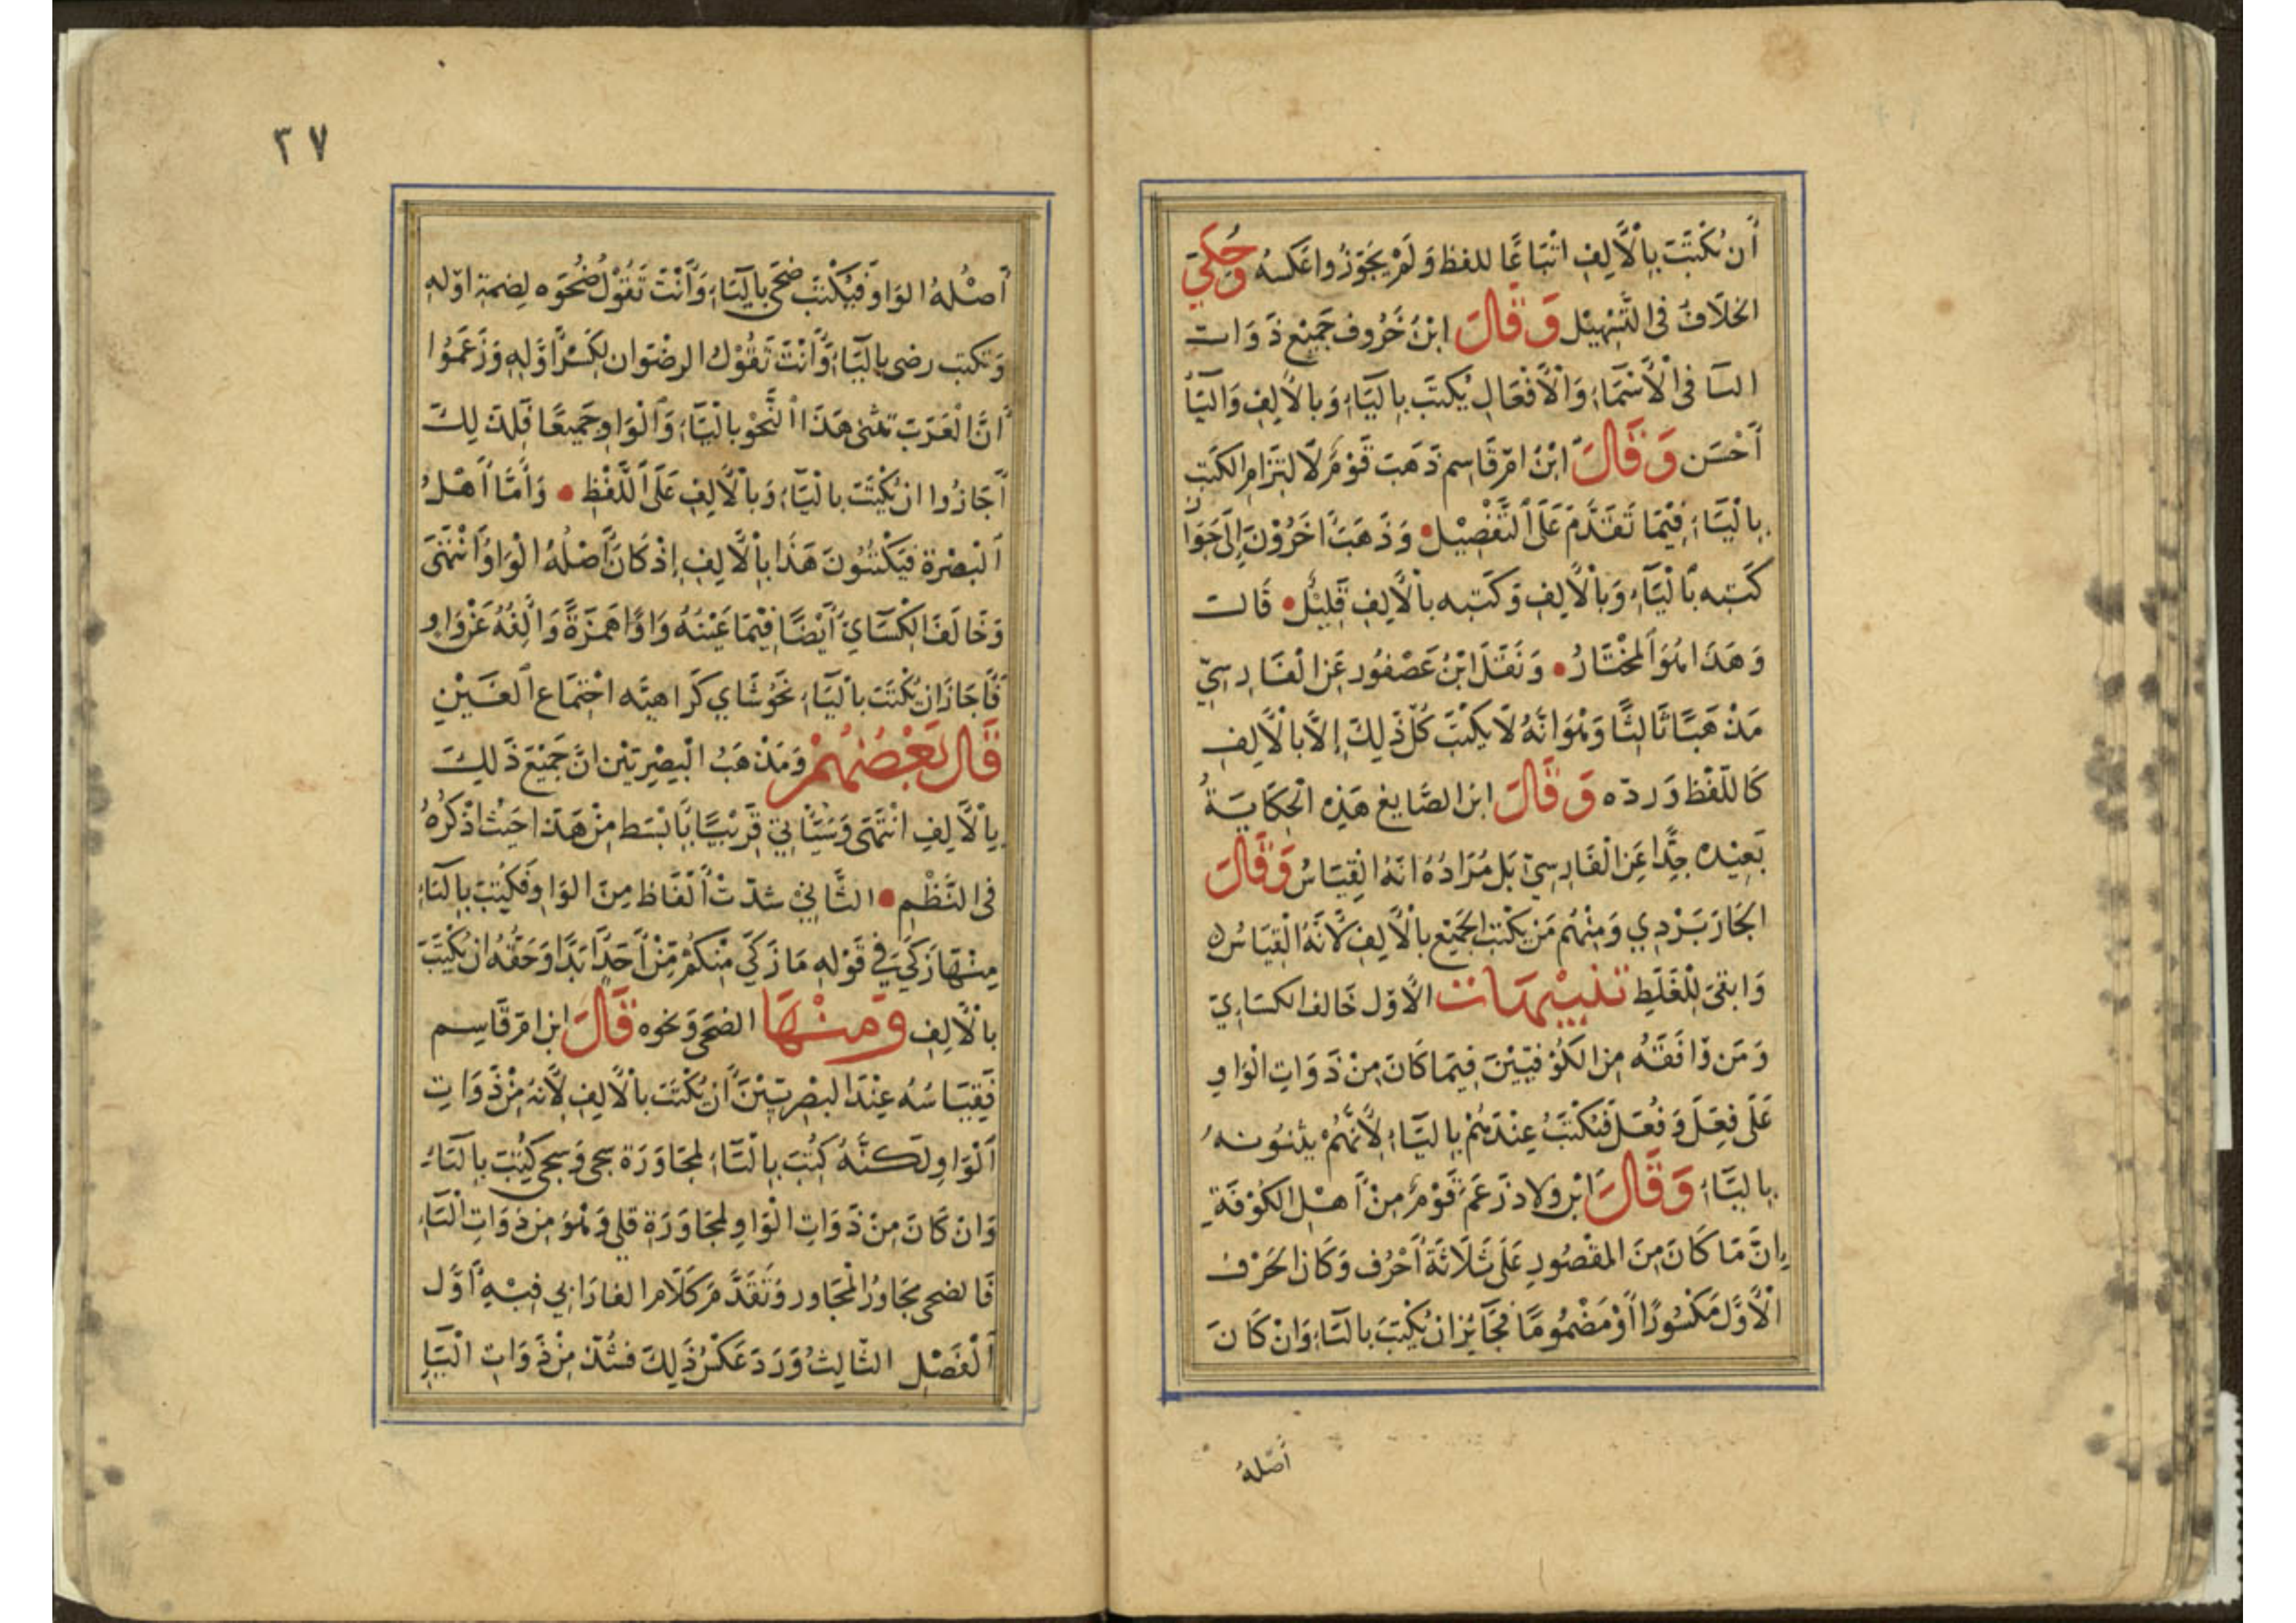 أَن تُكْتَبَ بِالْأَلِفِ اتْبَاعًا للفظ وَلَمْ يُجَوِّزُوا عَكسهُ وَحُكِيَ
الخلَافُ فى التَّسْهِيْل وَقَالَ ابْنُ خَرُوف جَمِيْع ذَوَات
اليَا فى الْأَسْمَاءِ وَالْأَفْعَالِ يُكتَب بِاليَاءِ وَبالْأَلِفِ وَاليَا
أَحْسَن وَقَالَ ابْنُ امّ قَاسِم ذَهَبَ قَوْمٌ لَالتِزَامِ الكَتب
بِالْيَاءِ فِيْمَا تَقَدَّمَ عَلَى التَّفْصِيْلِ وَذَهَبَ اَخَرُوْنَ إِلَى جَوَازُ
كَتبِه بَالْيَاءِ وَبالْأَلِفِ وَكَتبِه بالْأَلِفِ قَلِيْل قَالَ
وَهَذَا هُوَ الْمُخْتَارُ وَنَقَلَ ابْنُ عَصْفُور عَنِ الْفَارِسِيِّ
مَذْهَبًا ثَالِثًا وَهُوَ انَّهُ لَا يَكْتبُ كُلّ ذَلِكَ إِلَّا بالْأَلِفِ
كَاللّفْظ وَردّه وَقَالَ ابن الصَّايغ هَذِه الحِكَايَةُ
بَعِيْده جِدًّا عَنِ الْفَارِسِيّ بَل مُرَادُهُ انَهُ الْقِيَاسُ وَقَالَ
الجَارَبَرْدِي وَمِنْهُم مَنْ يَكْتب الجَمْيْع بالْأَلِفِ لأَنَّهُ الْقِيَاسُ
وَابقىَ لِلْغَلَطِ تنْبِيْهَات الأوّل خَالف الكسَاءِيّ
وَمَن وَافَقَهُ مِن الكُوْفيّيْنَ فِيمَا كَانَ مِنْ ذَوَاتِ الْوَاوِ
عَلَى فِعَلَ وَفُعَلَ فَتُكْتَبُ عِنْدَهُمْ بِاليَاءِ لِأَنَّهُمْ يثنُونهُ
بِاليَاءِ وَقَالَ ابْن وِلاد زَعَمَ قَوْمٌ مِنْ أَهْلِ الكُوْفَةِ
إِنَّ مَا كَانَ مِنَ المقْصُورِ عَلَى ثَلَاثَةِ أَحْرُف وَكَانَ الحَرْف
الْأَوَّلُ مَكْسُورًا أَوْ مَضْمُومًا فَجَائِز ان يُكْتبَ بالْيَاءِ وَانْ كَانَ
أَصْلهُ
٣٧
أَصْلهُ الوَاوَ فَيُكْتبُ ضحَى بِاليَاءِ وَأَنْتَ تَقُوْلُ ضُحَوَه لِضمَة اوّلهِ
وَتكتب رضى بِاليَاءِ وَأَنْتَ تَقُوْل الرضْوَان لِكَسْرِ أَوَّلِهِ وَزَعَمُوْا
أَنَّ الْعَرَبَ تثنى هَذَا النَّحْو بالْيَاءِ وَالْوَاوِ جَمِيعًا فَلِذَلِكَ
أَجَازُوا ان يُكْتَبَ بالْيَاءِ وَبالْأَلِفِ عَلَى اللَّفْظِ وَأَمَّا أَهْلُ
الْبَصْرَة فَيَكْتُبُونَ هَذَا بِالْأَلِفِ إِذْ كَانَ أَصْلُهُ الْوَاوُ انْتَهَى
وَخَالَفَ الْكسَّاىِ أَيْضًا فِيْمَا عَيْنُهُ وَاوًا هَمْزَةً وَالِفُهُ عَنْ وَاوِ
فَأَجَازَ ان تُكْتَبَ بالْيَاءِ نَحْوُ شَاي كَرَاهيَه اجْتِمَاع الفَيْنِ
قَالَ بَعْضُهُمْ وَمَذْهَبُ الْبَصْرِيّيْنَ انَّ جَمِيْعَ ذَلِكَ
بِالْأَلِفِ انْتَهَى وَسَيَأتِي قَرِيْبًا بَابْسَط مِنْ هَذَا حَيْثُ اذْكُرُهُ
فى النَّظْمِ الثَّانِيْ شذّتْ أَلْفَاظ مِنَ الوَاوِ فَكُتِبَ بِاليَاءِ
مِنْهَا زَكَى فِي قَوْلِهِ مَا زَكَى مِنْكُمْ مِنْ أَحَدٍ أَبَدًا وَحَقُّهُ ان يُكْتَبَ
بالْأَلِفِ وَمنْهَا الضحَى وَنحوه قَالَ ابن امّ قَاسِم
فَقِيَاسُه عِنْدَ البَصْرِيِّيْنَ أَنْ يُكْتَبَ بالْأَلِفِ لأَنهُ مِنْ ذَوَاتِ
اَلْوَاوِ وَلَكنَّهُ كُتِبَ بِالْيَاءِ لمجَاوَرَة سجى وَسجى كُتِبَ بِاليَاءِ
وَانْ كَانَ مِنْ ذَوَاتِ الْوَاوِ لمجَاوَرَةِ قلى وَهُوَ مِنْ ذَوَاتِ الْيَاءِ
فَالضحى مجَاوِرُ الْمُجَاور وَتَقَدَّمَ كَلَام الفارَابي فِيْهِ أَوَّل
اَلْفَصْلِ الثّالِثُ وَرَدَ عَكْسُ ذَلِكَ فَشُذّ مِنْ ذَوَاتِ الْيَاءِ